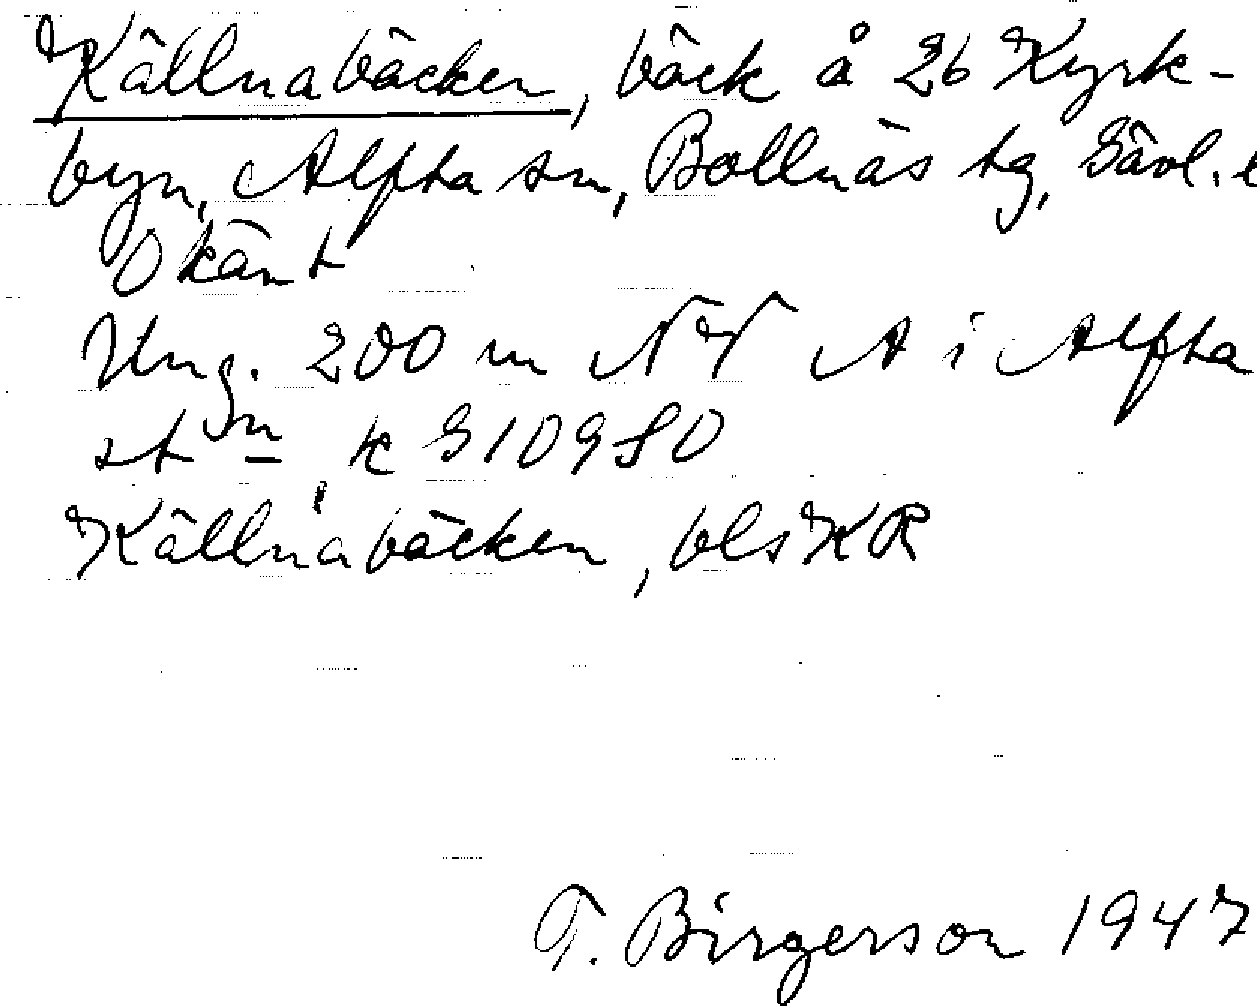 Källnabäcken, bäck å 26 Kyrk-
byn, Alfta sn, Bollnäs tg, Gävl. l
Okänt
Ung. 200 m NV A i Alfta
stn k 910980
Källnabäcken, bls KR
T. Birgerson 1947